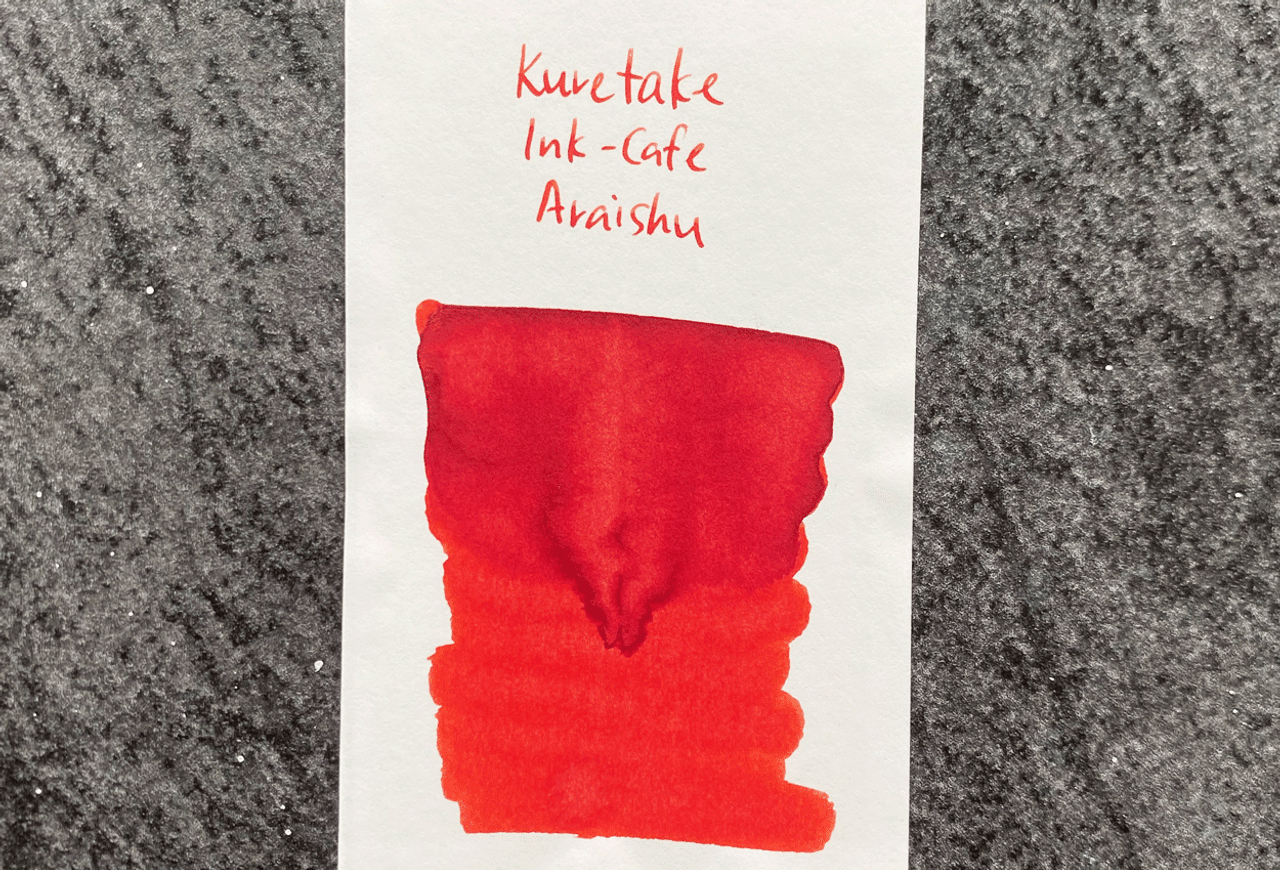 Kuretake
Ink-Cafe
Araishu